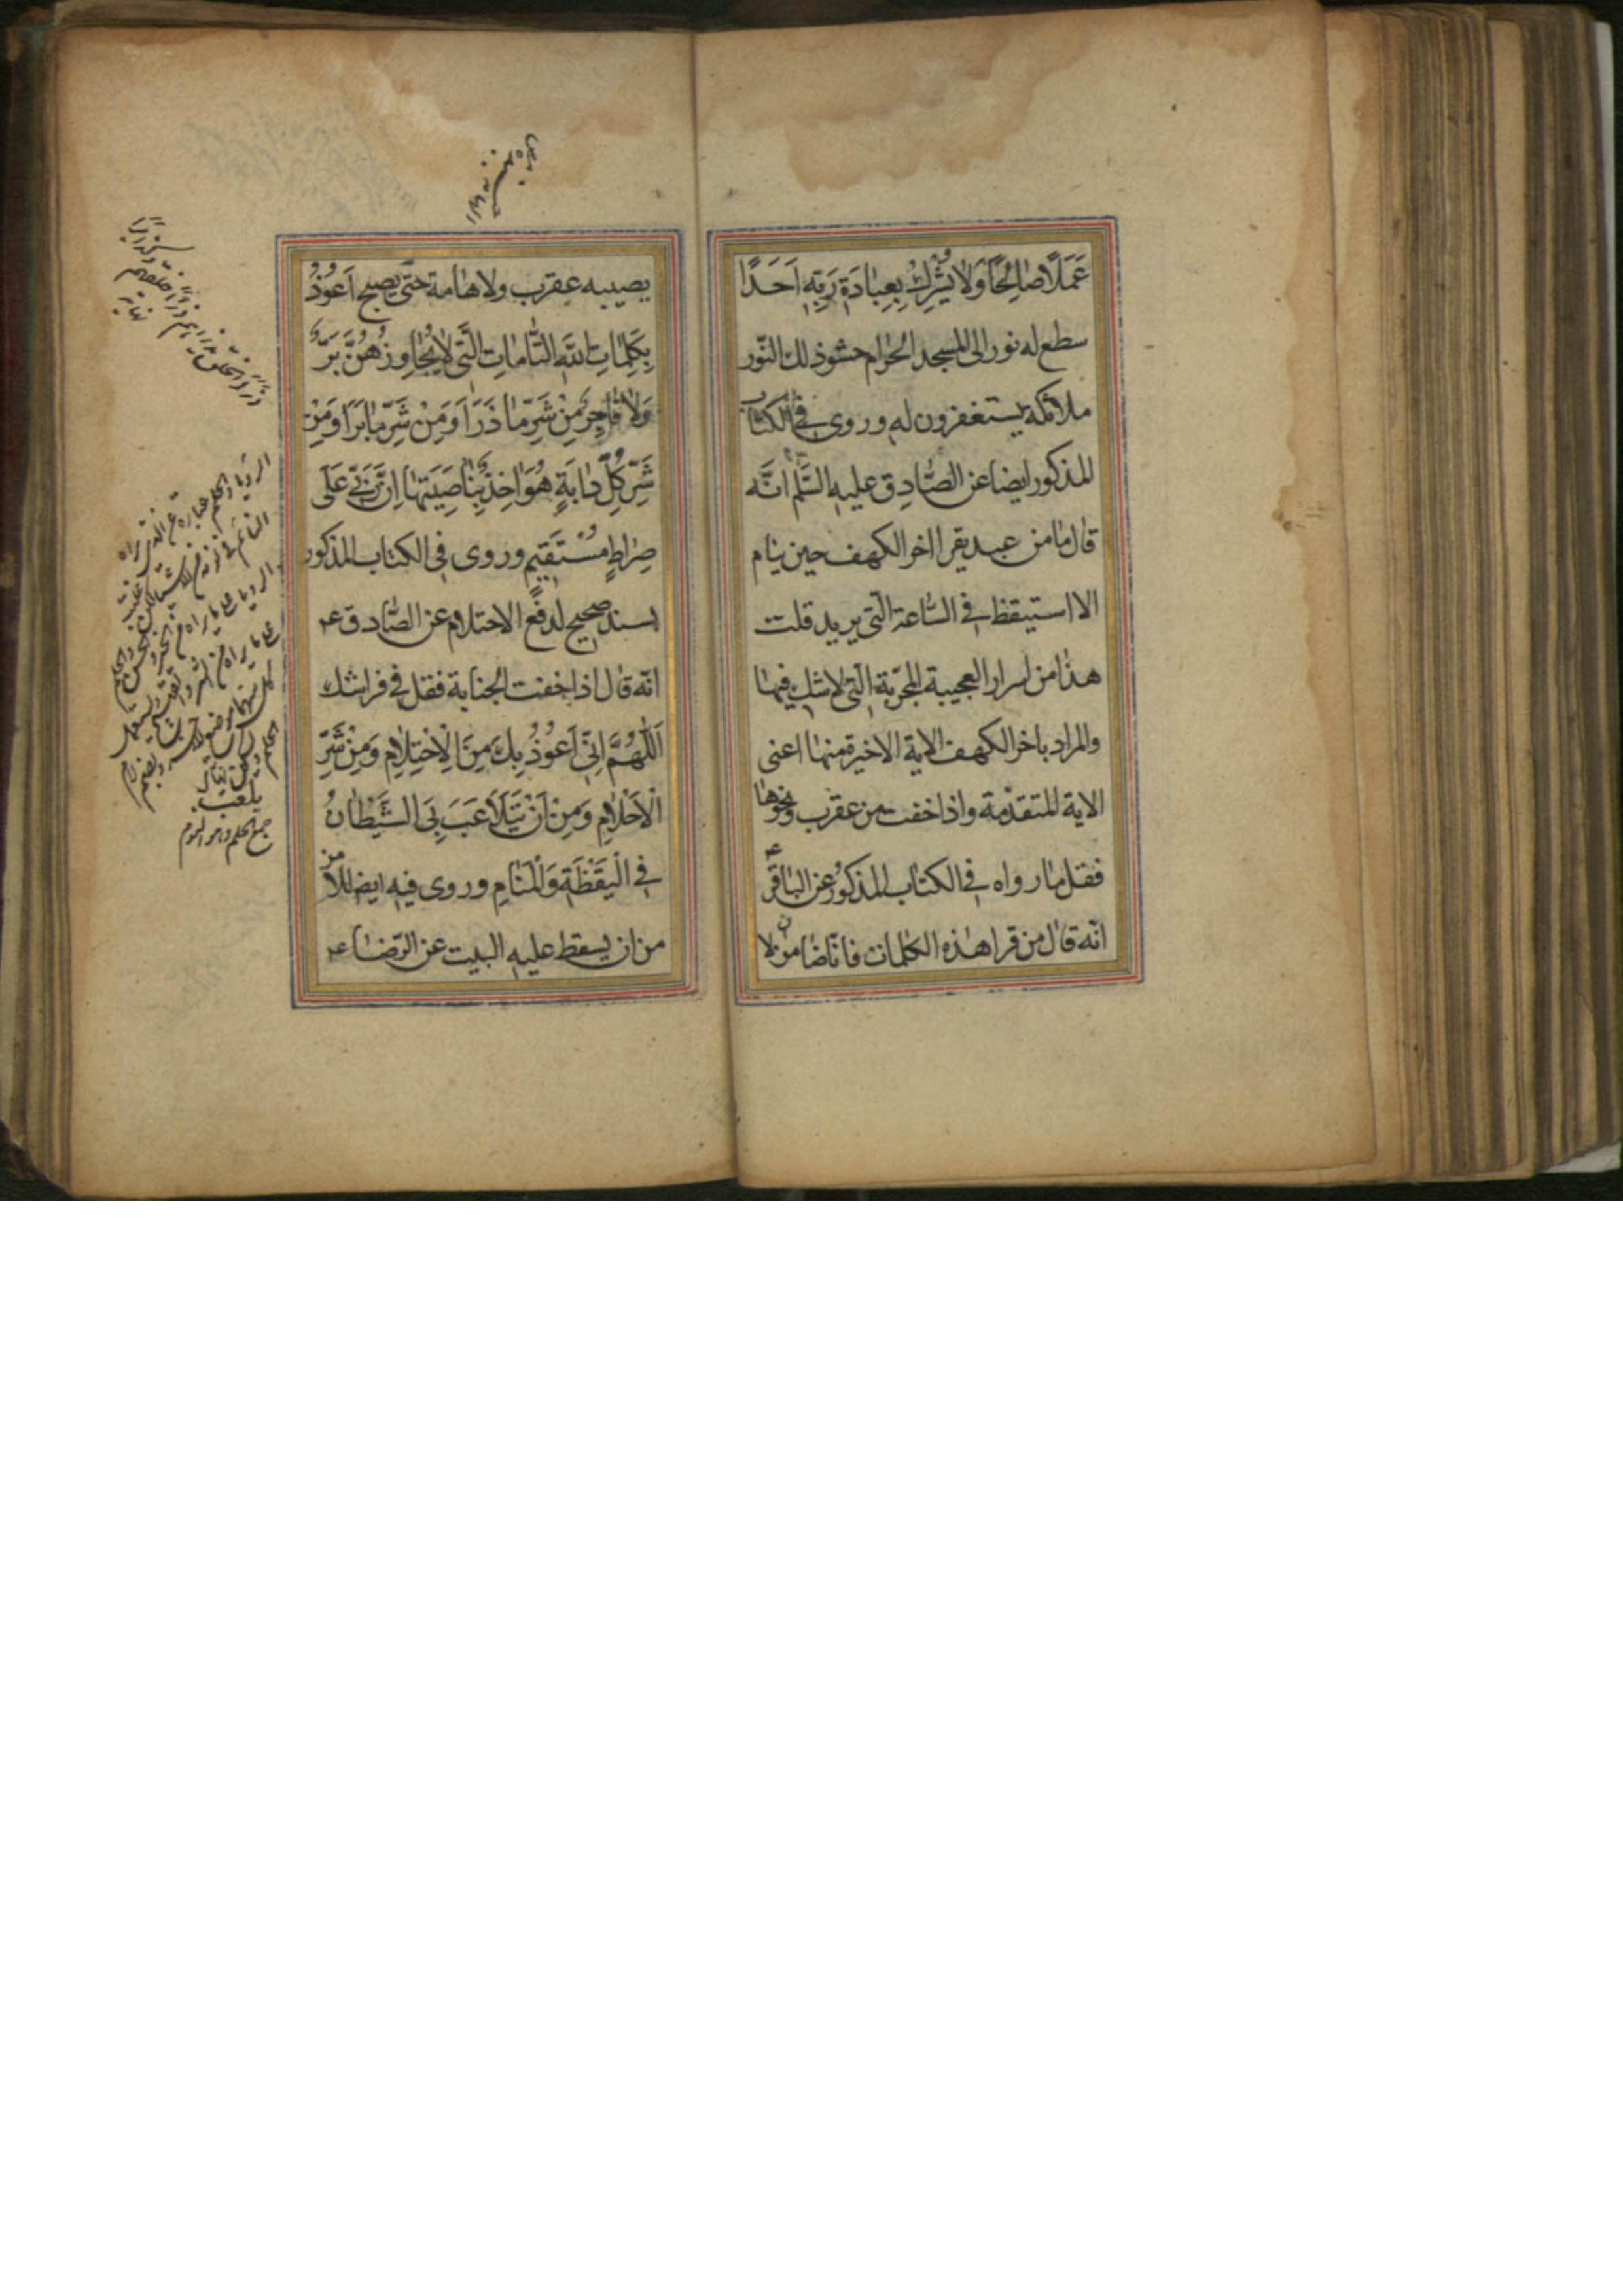 عَمَلًا صَالِحًا وَلَا يُشْرِكْ بِعِبَادَةِ رَبِّهِ اَحَدًا
سطع له نور الى المسجد الحرام حشو ذلك النّور
ملائكه يستغفرون له وروى فى الكتاب
المذكور ايضا عن الصّادق عليه السّلم انّه
قال ما من عبد يقرا اخر الكهف حين ينام
الا استيقظ فى السّاعة الّتى يريد قلت
هذا من اسرار العجيبة المجرّبة الّتى لا شك فيها
والمراد باخر الكهف الاية الاخيرة منها اعنى
الاية المتقدّمة واذا خفت من عقرب ونحوها
فقل ما رواه فى الكتاب المذكور عن الباقر ع
انّه قال من قرا هذه الكلمات فانا ضامن ان لا
يصيبه عقرب ولا هامة حتى يصبح اَعُوذُ
بِكَلِمَاتِ اللّٰهِ التَّامَاتِ الَّتى لَا يُجَاوِزُهُنَّ بَرٌّ
وَلَا فَاجِرٌ مِنْ شَرِّ مَا ذَرَاَ وَمِنْ شَرِّ مَا بَرَاَ وَمِنْ
شَرِّ كُلِّ دَابَةٍ هُوَ اخِذٌ بِنَاصِيَتِهَا اِنَّ رَبّى عَلَى
صِرَاطٍ مُسْتَقِيمٍ وروى فى الكتاب المذكور
بسند صحيح لدفع الاحتلام عن الصّادق ع
انّه قال اذا خفت الجنابة فقل فى فراشك
اَللّٰهُمَّ اِنّى اَعُوذُ بِكَ مِنَ الْاِحْتِلَامِ وَمِنْ شَرِّ
الْاَحْلَامِ وَمِنْ اَنْ يَتَلَاعَبَ بِىَ الشَّيْطَانُ
فى الْيَقْظَةِ وَالْمَنَامِ وروى فيه ايضا للامن
من ان يسقط عليه البيت عن الرّضا ع
الرويا والحلم عبارة عن الذى يراه
النائم فى نومه من الاشياء لكن غلبت
الرويا على ما يراه من الخير والحسن والحلم
على ما يراه من الشر والقبيح
جمع الحلم وهو النوم